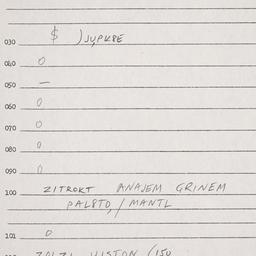 030 $
040 0
050 —
060 0
070 0
080 0
090 0
100 ZITROKT ANAJEM GRINEM
PALSTO, / MANTL
101 0